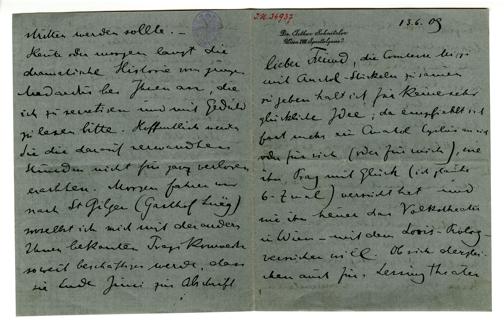 13.6.09
Dr. Arthur Schnitzler
Wien XVIII. Spoettelgasse 7.
lieber Freund, die Comtesse Mizzi
mit Anatol-Stücken zusammen
zu geben halt ich für keine sehr
glückliche Idee; da empfiehlt sich
fast mehr ein Anatol Cyclus an sich
oder für sich (oder für mich), wie
ihn Prag mit Glück (ich glaube
6-7 mal) versucht hat und
wie ihn heuer das Volkstheater
in Wien – mit dem Lewis-Prolog –
versuchen will. Ob sich dergleichen
auch fürs Lessingtheater
schicken werden sollte. –
Heute oder morgen langt die
dramatische Historie vom jungen
Medardus bei Ihnen an, die
ich zu und mit Geduld
zu lesen bitte. Hoffentlich werden
Sie die darauf verwendten
Stunden nicht für ganz verloren
erachten. Morgen fahren wir
nach St Gilgen (Gasthof Lueg)
woselbst ich mich mit der andern
Ihnen bekannten Tragikomoedie
soweit beschäftigen werde, dass
sie Ende Juni zur Abschrift
J.N. 36937